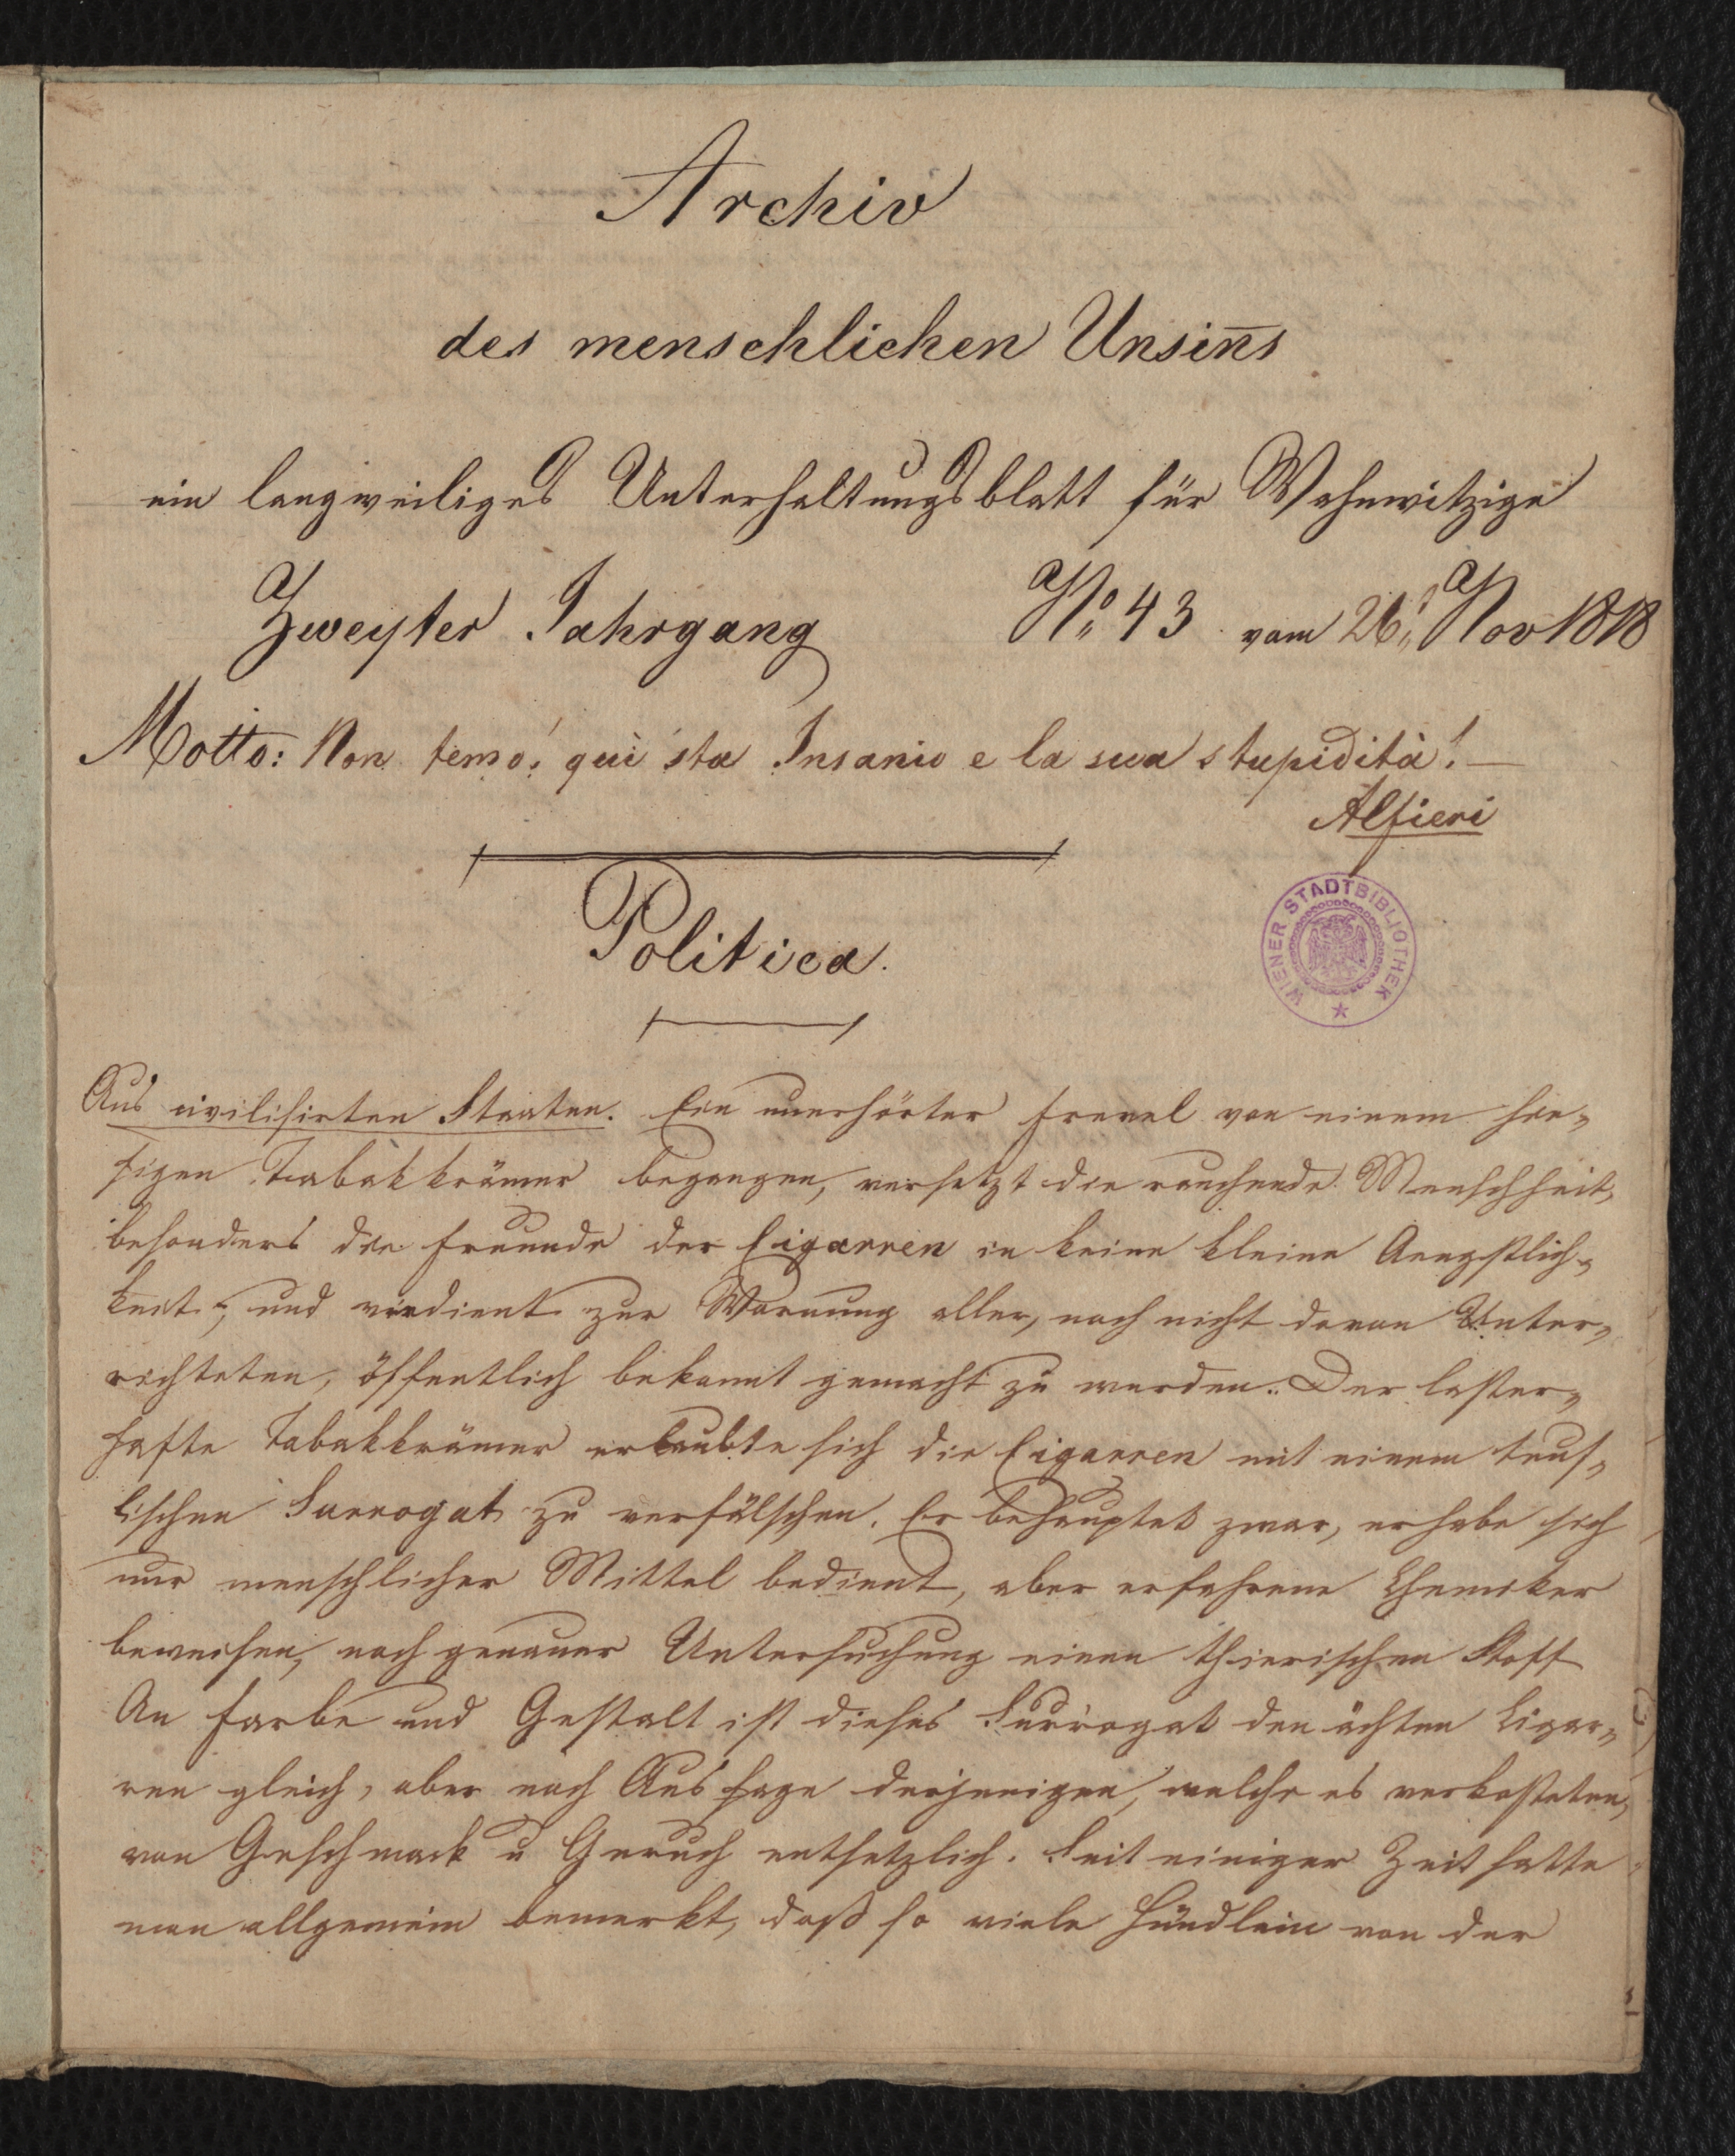 Archiv
des menschlichen Unsin̄s
ein langweiliges Unterhaltungsblatt für Wahnwitzige
Zweyter Jahrgang No: 43 vom 26: Nov 1818
Motto: Non temo! qui sta Insanio e la sua stupidità! —
Alfieri
Politica.
WIENER STADTBIBLIOTHEK
Aus civilisirten Staaten. Ein unerhörter Frevel von einem hie-
sigen Tabakkrämer begangen, versetzt die rauchende Menschheit,
besonders die Freunde der Cigarren in keine kleine Aengstlich-
keit; und verdient zur Warnung aller, noch nicht davon Unter-
richteten, öffentlich bekannt gemacht zu werden. Der laster-
hafte Tabakkrämer erlaubte sich die Cigarren mit einem teuf-
lischen Surrogat zu verfälschen. Er behauptet zwar, er habe sich
nur menschlicher Mittel bedient, aber erfahrene Chemiker
beweisen, nach genauer Untersuchung einen thierischen Stoff
An Farbe und Gestalt ist dieses Surrogat den ächten Cigar-
ren gleich, aber nach Aussage derjenigen, welche es verkosteten,
von Geschmack u Geruch entsetzlich. Seit einiger Zeit hatte
man allgemein bemerkt, daß so viele Hündlein von der